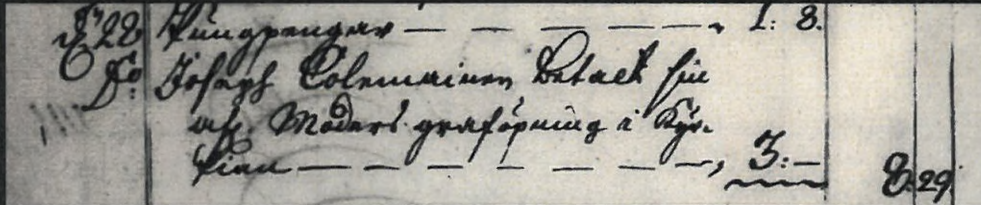 d 28 Pungpengar — — — — — „ 1: 8.
Do Joseph Colemainen Betalt sin
afl. Moders graföpning i Kyr-
kian — — — — — — — „ 3: — 8: 29.